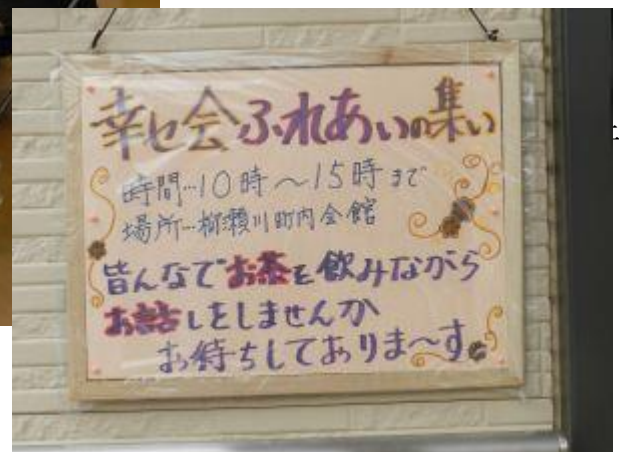 幸せ会ふれあいの集い
時間…10時〜15時まで
場所…柳瀬川町内会館
皆んなでお茶を飲みながら
お話しをしませんか
お待ちしてありま〜す